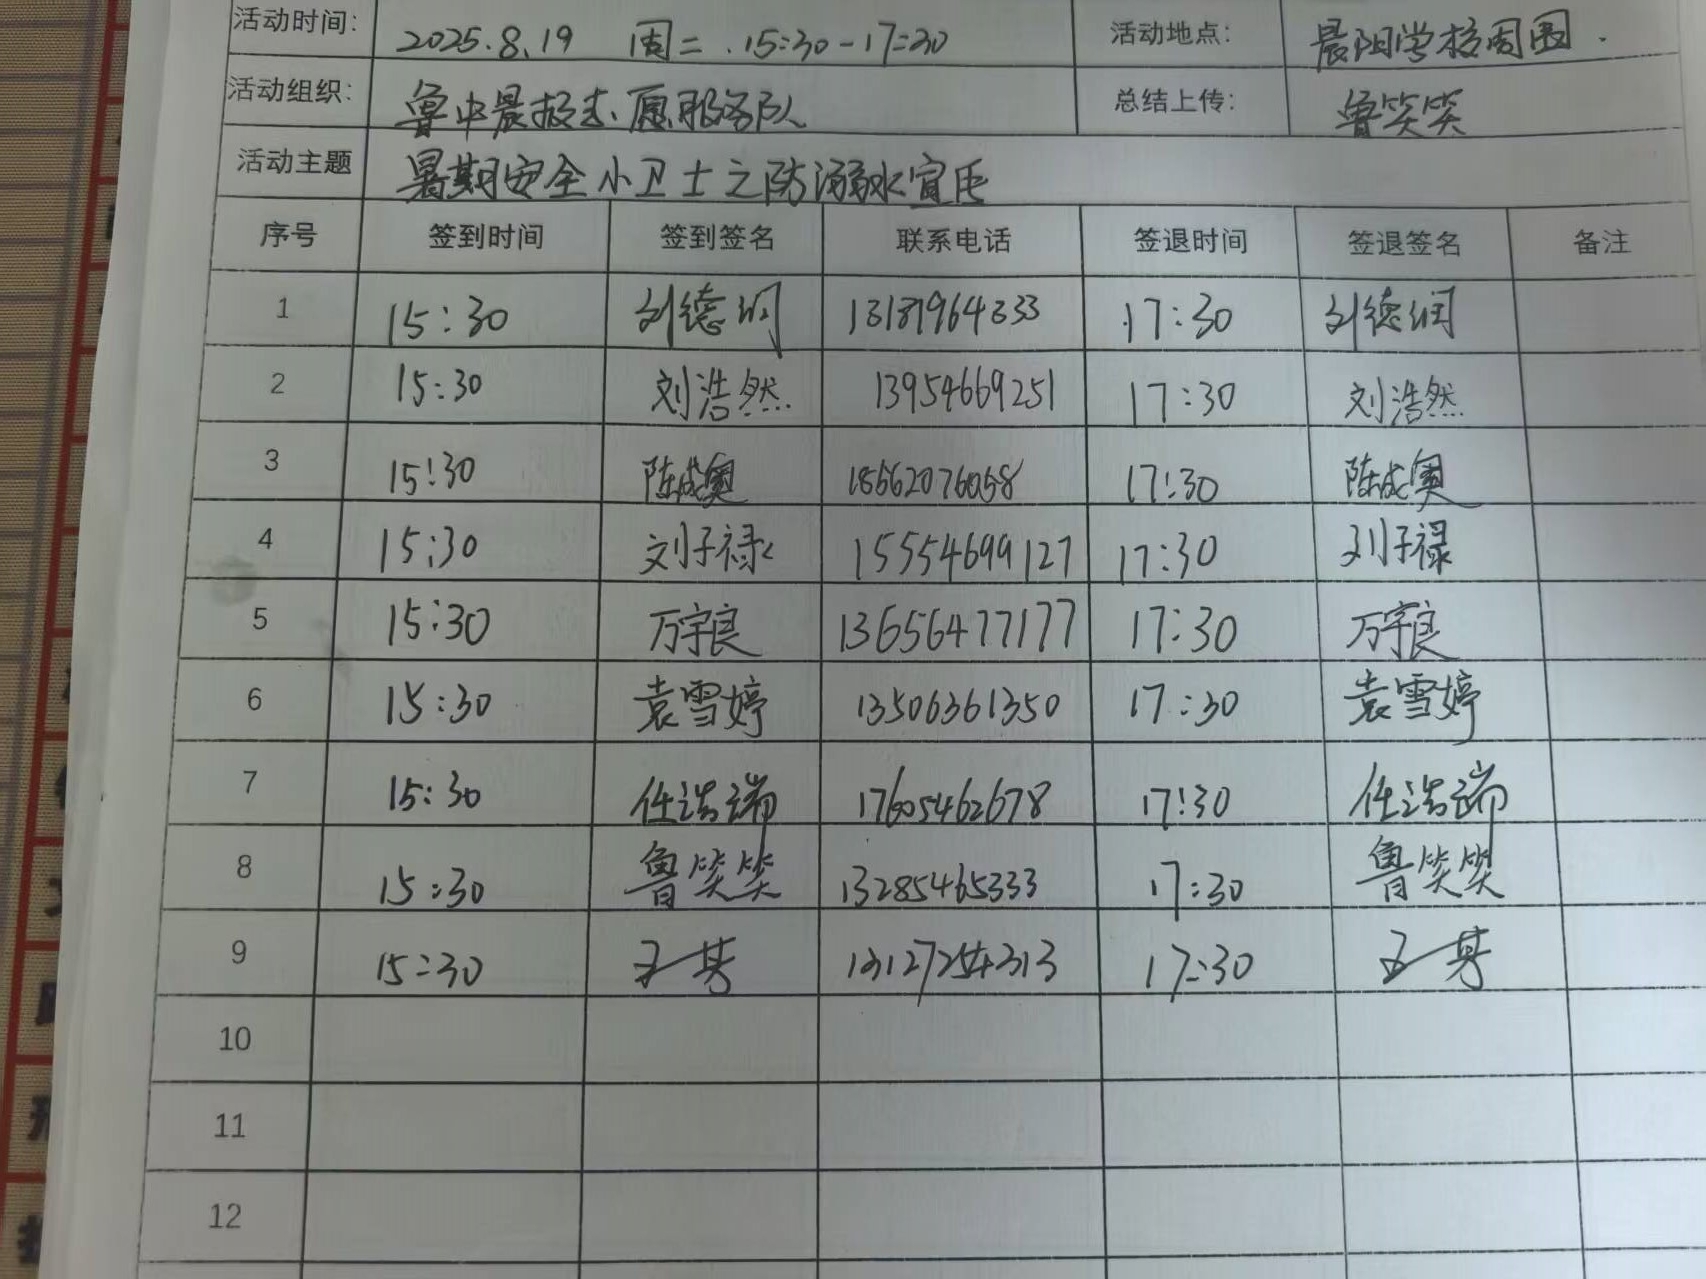 活动时间: 2025.8.19 周二 .15:30-17:30 活动地点: 晨阳学校周围.
活动组织: 鲁中晨报志愿服务队 总结上传: 鲁笑笑
活动主题 暑期安全小卫士之防溺水宣传
序号 签到时间 签到签名 联系电话 签退时间 签退签名 备注
1 15:30 刘德润 13181964333 17:30 刘德润
2 15:30 刘浩然 13954669251 17:30 刘浩然
3 15:30 陈成奥 18562076058 17:30 陈成奥
4 15:30 刘子禄 15554699127 17:30 刘子禄
5 15:30 万宇良 13656477177 17:30 万宇良
6 15:30 袁雪婷 13506361350 17:30 袁雪婷
7 15:30 任浩端 17605462678 17:30 任浩端
8 15:30 鲁笑笑 13285465333 17:30 鲁笑笑
9 15:30 13127254313 17:30
10
11
12